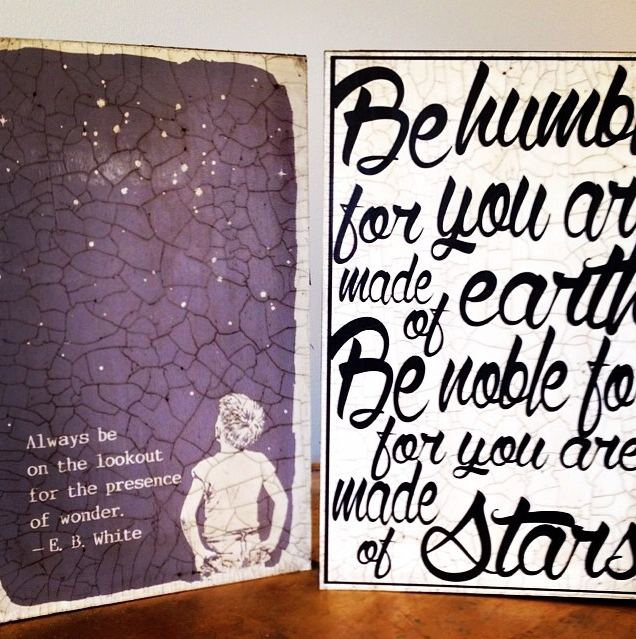 Always be
on the lookout
for the presence
of wonder.
— E. B. White
Be humbl
for you ar
made of earth
Be noble fo
for you are
made
of Stars